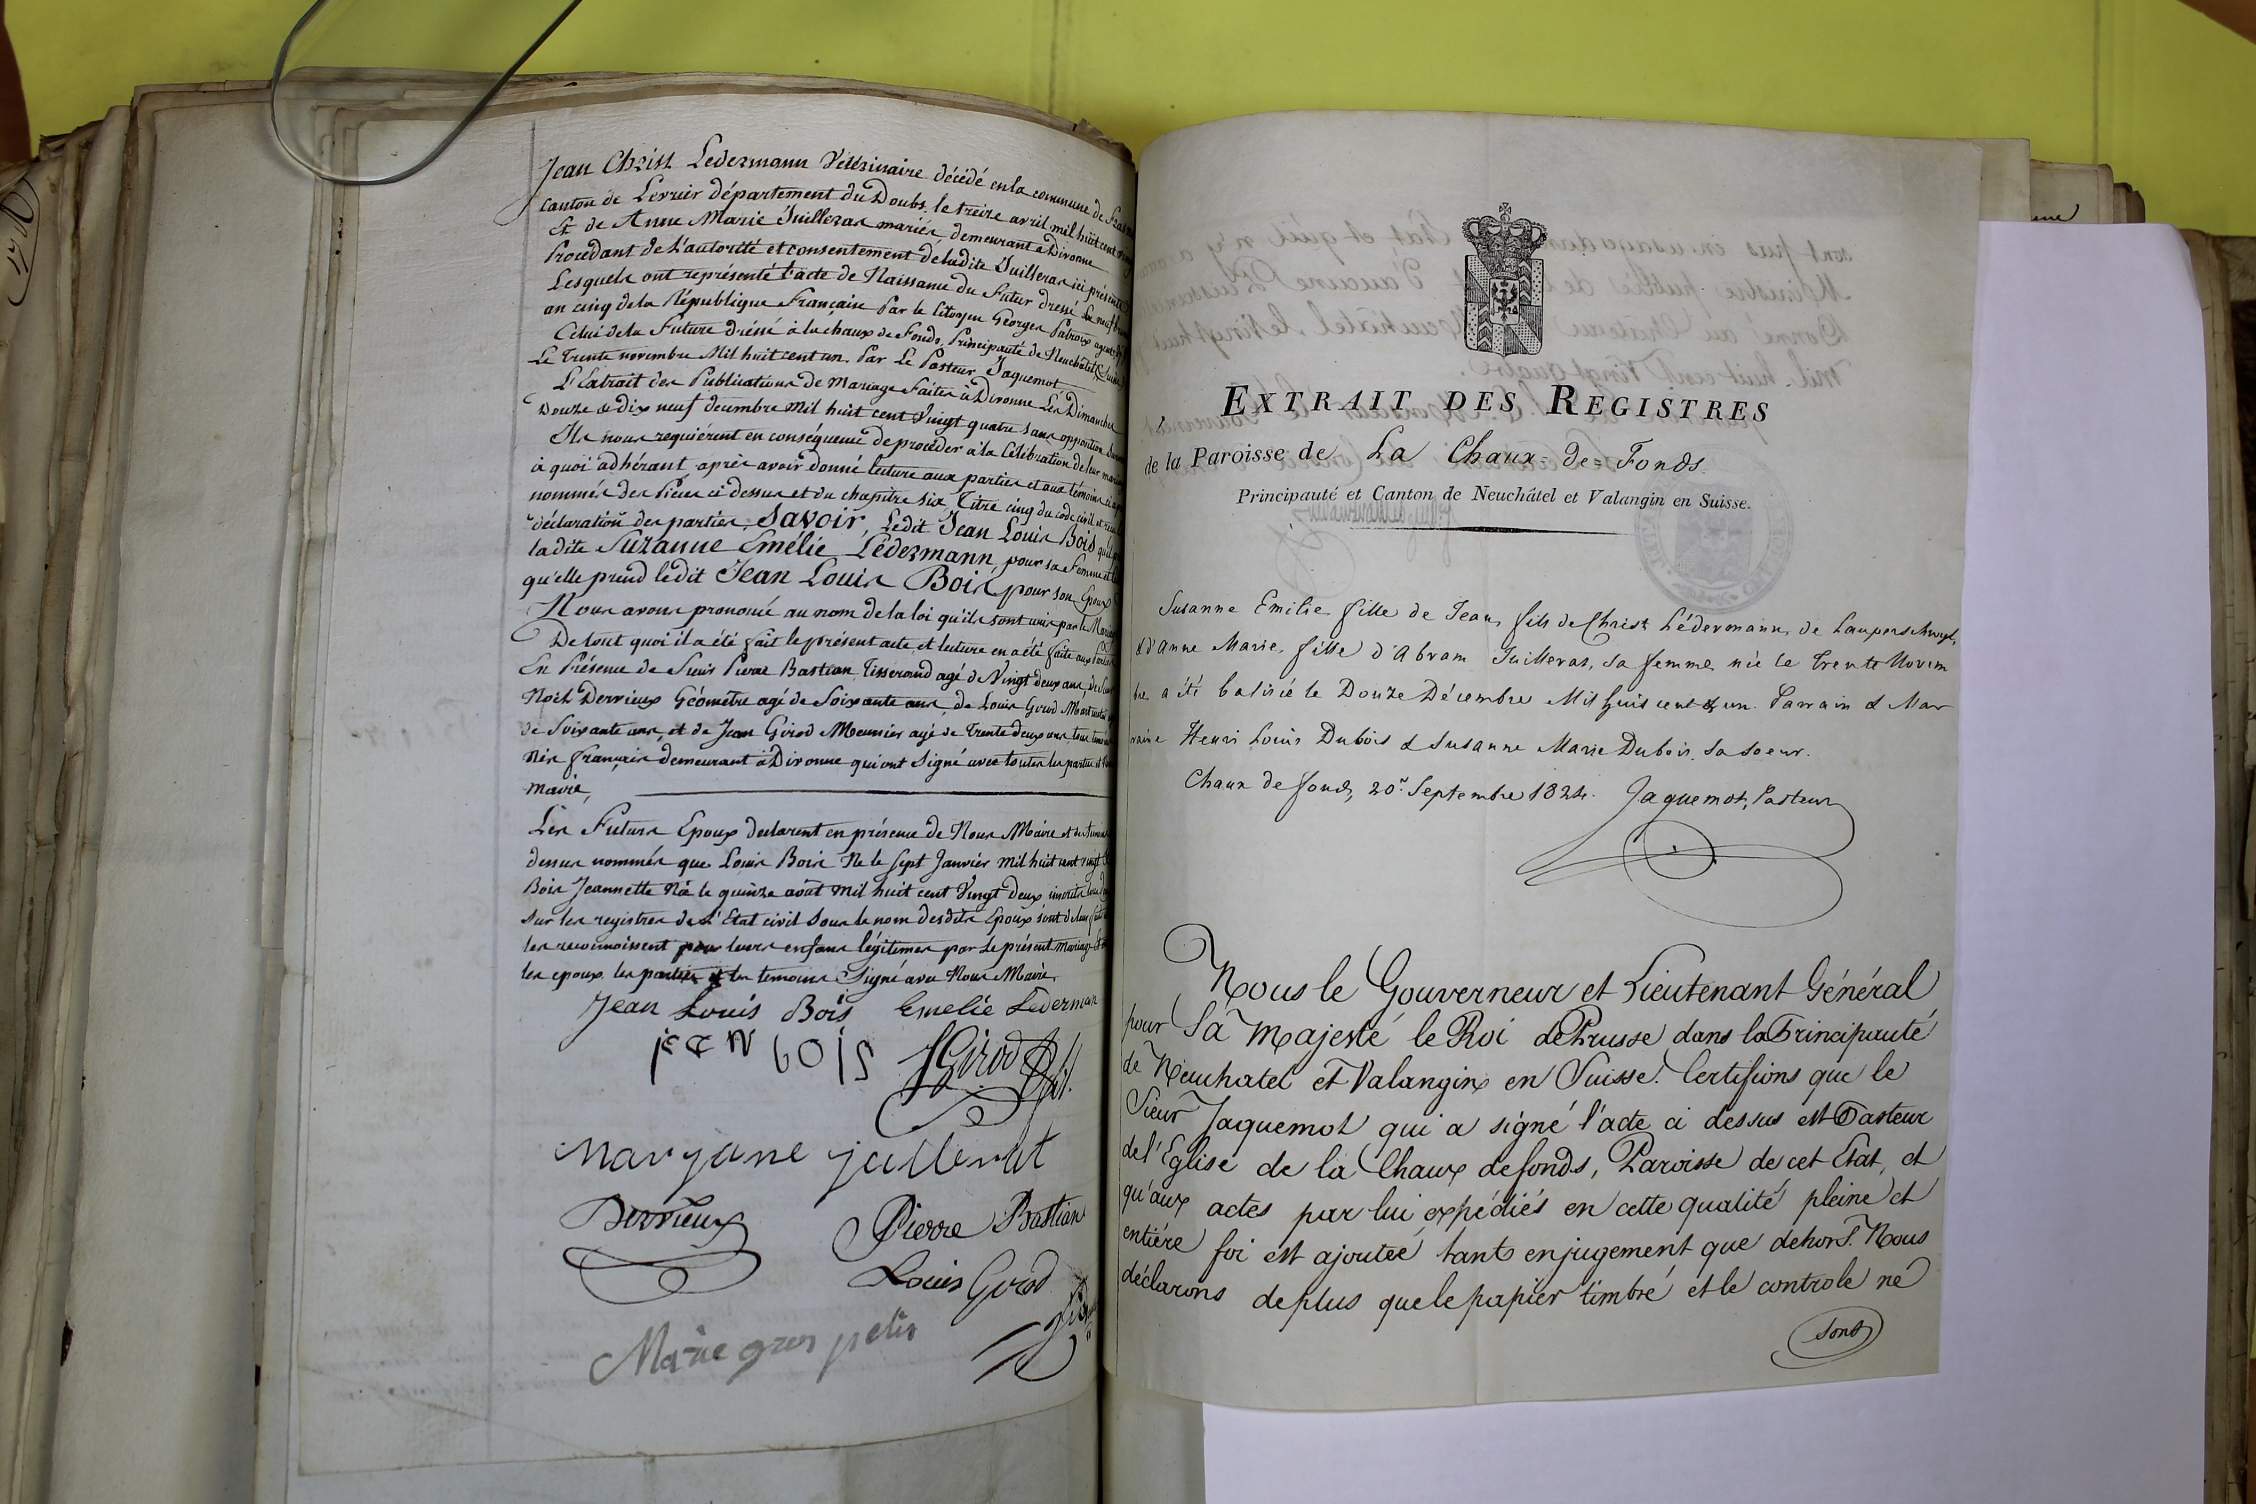 Jean Christ Ledermann Vétérinaire décédé en la commune de
canton de Levrier département du Doubs, le treize avril mil huit cent
Et de Anne Marie Juilleras mariés, demeurant à Divonne
Procédant de l'autorité et consentement de ladite Juilleras ici présente
Lesquels ont représenté l'acte de Naissance du Futur dressé le neuf
an cinq de la République Française Par le Citoyen Georges Patroux agent
Celui de la Future dressé à la chaux de Fonds, Principauté de Neuchâtel (Suisse
Le trente novembre Mil huit cent un. Par Le Pasteur Jaquemot
L'Extrait des Publications de Mariage Faites à Divonne Les Dimanches
Douze & dix neuf decembre Mil huit cent Vingt quatre sans opposition
Ils nous requièrent en conséquence de procéder à la Célébration de leur
à quoi adhérant, après avoir donné lecture aux parties et aux témoins
nommés des Pièces ci dessus et du chapitre six, Titre cinq du code civil et
déclaration des parties, Savoir, Ledit Jean Louis Bois
ladite Suzanne Emélie Lédermann, pour sa Femme et
qu'elle prend ledit Jean Louis Bois, pour son Epoux
Nous avons prononcé au nom de la loi qu'ils sont unis par le
De tout quoi il a été fait le présent acte, et lecture en a été faite aux
En Présence de Sieur Pierre Bastian Tisserand agé de Vingt deux ans,
Noël Derrieux Géomètre agé de Soixante ans, de Louis Girod
de Soixante ans, et de Jean Girod Meunier agé de Trente deux ans, tous
Nés français demeurant à Divonne qui ont Signé avec toutes les parties et
Maire,
Les Futurs Epoux declarent en présence de Nous Maire et des
dessus nommés que Louis Bois Né le sept Janvier mil huit cent vingt
Bois Jeannette Née le quinze août mil huit cent Vingt deux inscrits
sur les registres de L'Etat civil sous le nom desdits Epoux sont
les reconnoissent pour leurs enfans légitimes par le présent mariage
les epoux les parties & les temoins Signé avec Nous Maire.
Jean Louis Bois Emelie Lederman
Jean bois JGirod
Maryane juillerat
Derrieux Pierre Bastian
Louis Girod
Marie gros pelis
EXTRAIT DES REGISTRES
de la Paroisse de La Chaux-de-Fonds.
Principauté et Canton de Neuchâtel et Valangin en Suisse.
Susanne Emilie fille de Jean, fils de Christ Lédermann, de Lauperschwyl,
& d'Anne Marie, fille d'Abram Juilleras, sa femme, née le trente Novem
bre a été batisée le Douze Décembre Mil huit cent & un. Parrain & Mar
raine Henri Louis Dubois & Susanne Marie Dubois, sa soeur.
Chaux de fonds, 20e. Septembre 1824. Jaquemot, Pasteur
Nous le Gouverneur et Lieutenant Général
pour Sa Majesté le Roi de Prusse dans la Principauté
de Neuchatel et Valangin en Suisse. Certifions que le
Sieur Jaquemot qui a signé l'acte ci dessus est Pasteur
de l'Eglise de la Chaux de fonds, Paroisse de cet Etat, et
qu'aux actes par lui expédiés en cette qualité pleine et
entière foi est ajoutée tant en jugement que dehors. Nous
déclarons de plus que le papier timbré et le controle ne
sont